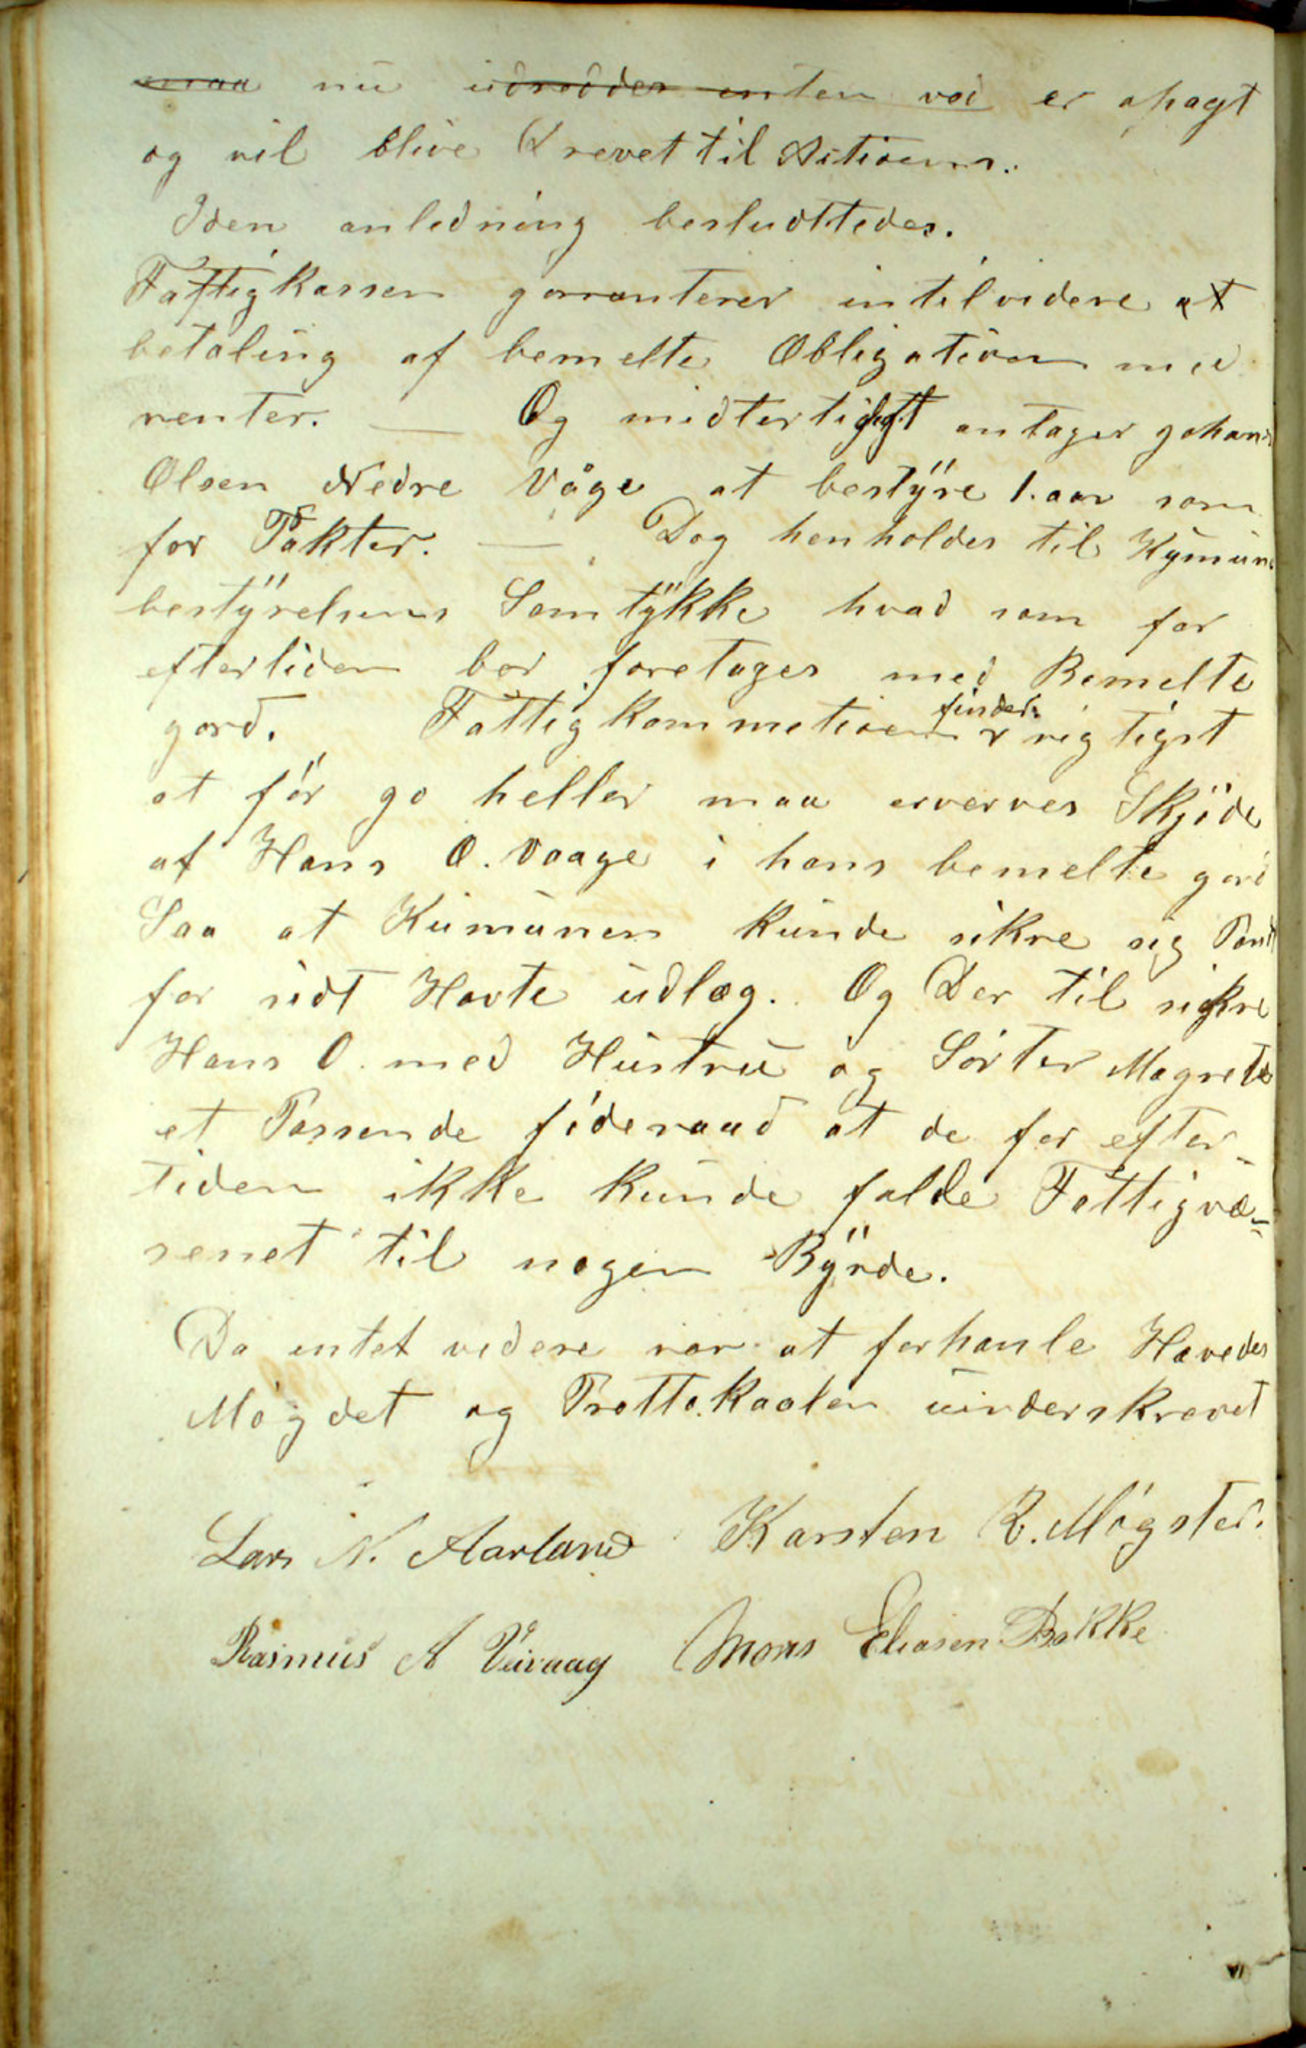 maa nu udredder enten ved er opsagt
og vil blive Krevet til Astioens.
Iden anledning besludttedes.
Fattigkassen garanterer intilvidere at
betaling af bemelte Obligation med
renter. — Og midtertidigt antager Johans
Olsen Nedre Våge at bestÿre 1. aar som
for Pakter. — Dog henholdes til Kymun
bestÿrelsens Samtÿkke hvad som for
eftertiden bør foretages med Bemelte
gord. Fattigkommetioen finder rigtigst
at før jo heller maa erverves Skjøde
af Hans O. Vaage i hans bemelte gard
Saa at Kumunen kunde sikre sig Pant
for sidt Havte udlæg. Og Der til sikre
Hans O. med Hustru og Søster Magrete
et Passendeføderaad at de for efter-
tiden ikke kunde falde Fattigvæ-
senet til nogen Bÿrde.
Da intet videre var at forhanle Hævedes
Møgdet og Prottokaalen underskrevet
Lars N. Aarland Karsten R. Møgster.
Rasmus A Veivaag Mons Eliasen Bakke